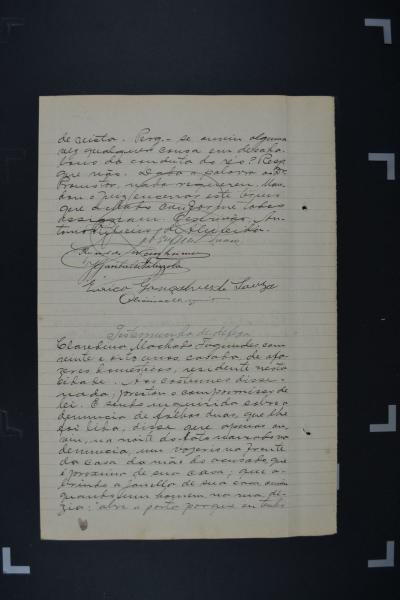 de vista. Perg. se ouviu alguma
vez qualquer cousa em desabo
no da conduta do réo? Resp.
que não. Dada a palavra ao Dr.
Promotor, nada requereu. Man
dou o juiz encerrar este termo
que achado conforme todos
assignam. Eu
Enrico Gonçalves de Souza
Testemunha de defesa
Claredina Machado Fagundes, com
vinte e oito anos, casada, de afa
zeres domesticos, residente nesta
cidade. Aos costumes disse
nada, prestou o compromisso de
lei. E sendo inquirida sobre a
denuncia de folhas duas, que lhe
foi lida, disse que apenas ou
viu, na noite do fato narrado na
denuncia, um vozerio na frente
da casa da mãe do acusado, que
é proximo de sua casa; que a
brindo a janella de sua casa ouviu
quando um homem na rua di
zia: abre a porta porque eu